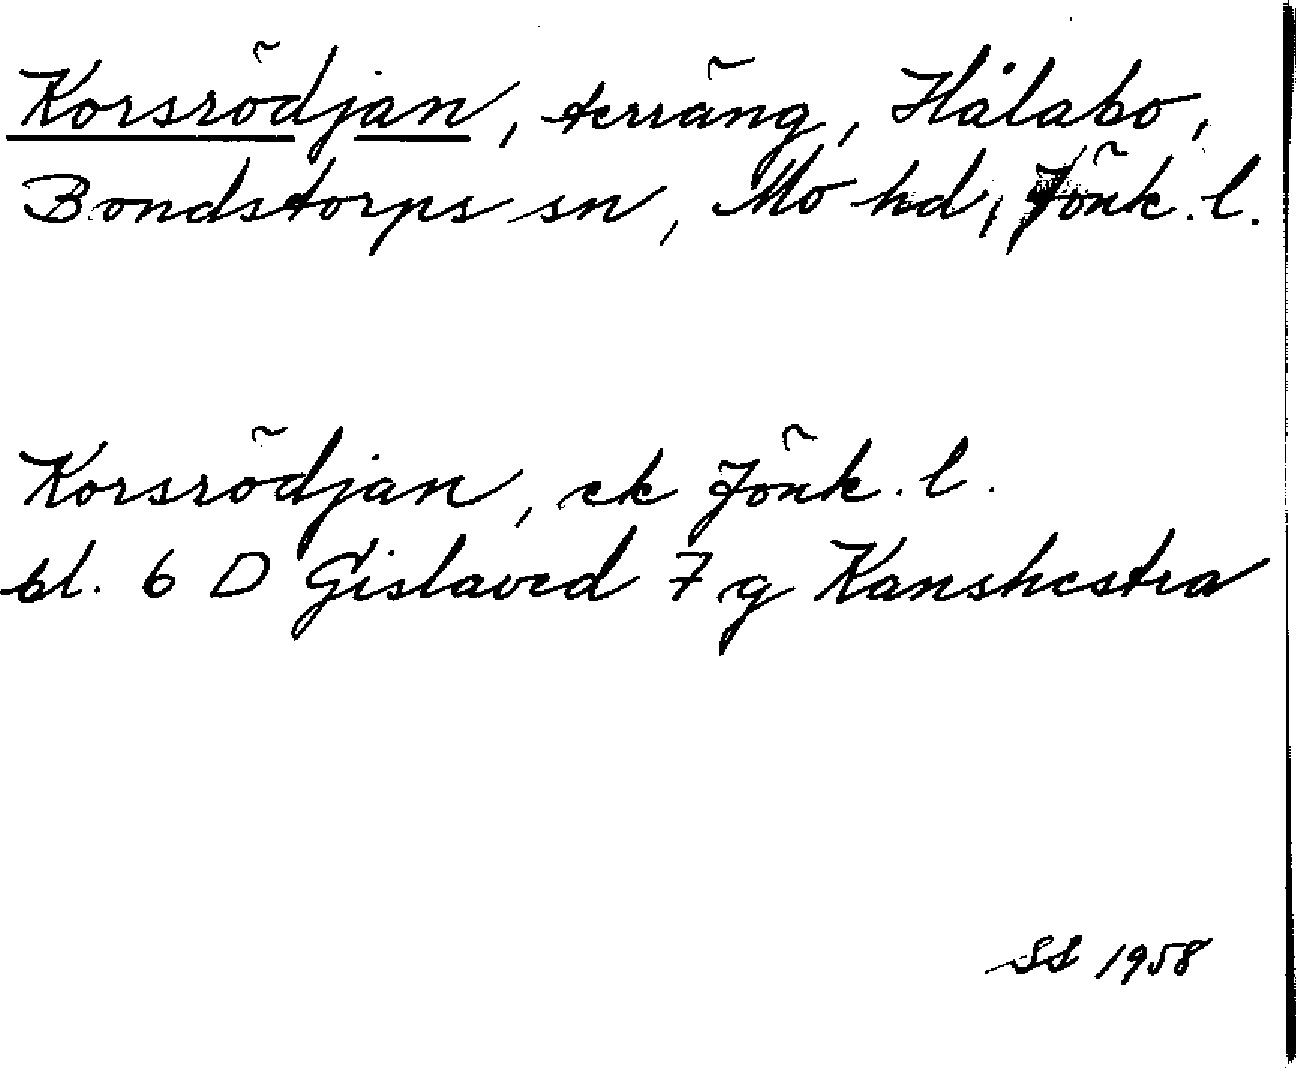 Korsrödjan, terräng, Hålabo,
Bondstorps sn, Mo hd, Jönk. l.
Korsrödjan, ek Jönk. l.
bl. 6 D Gislaved 7 g Kanshestra
SS 1958